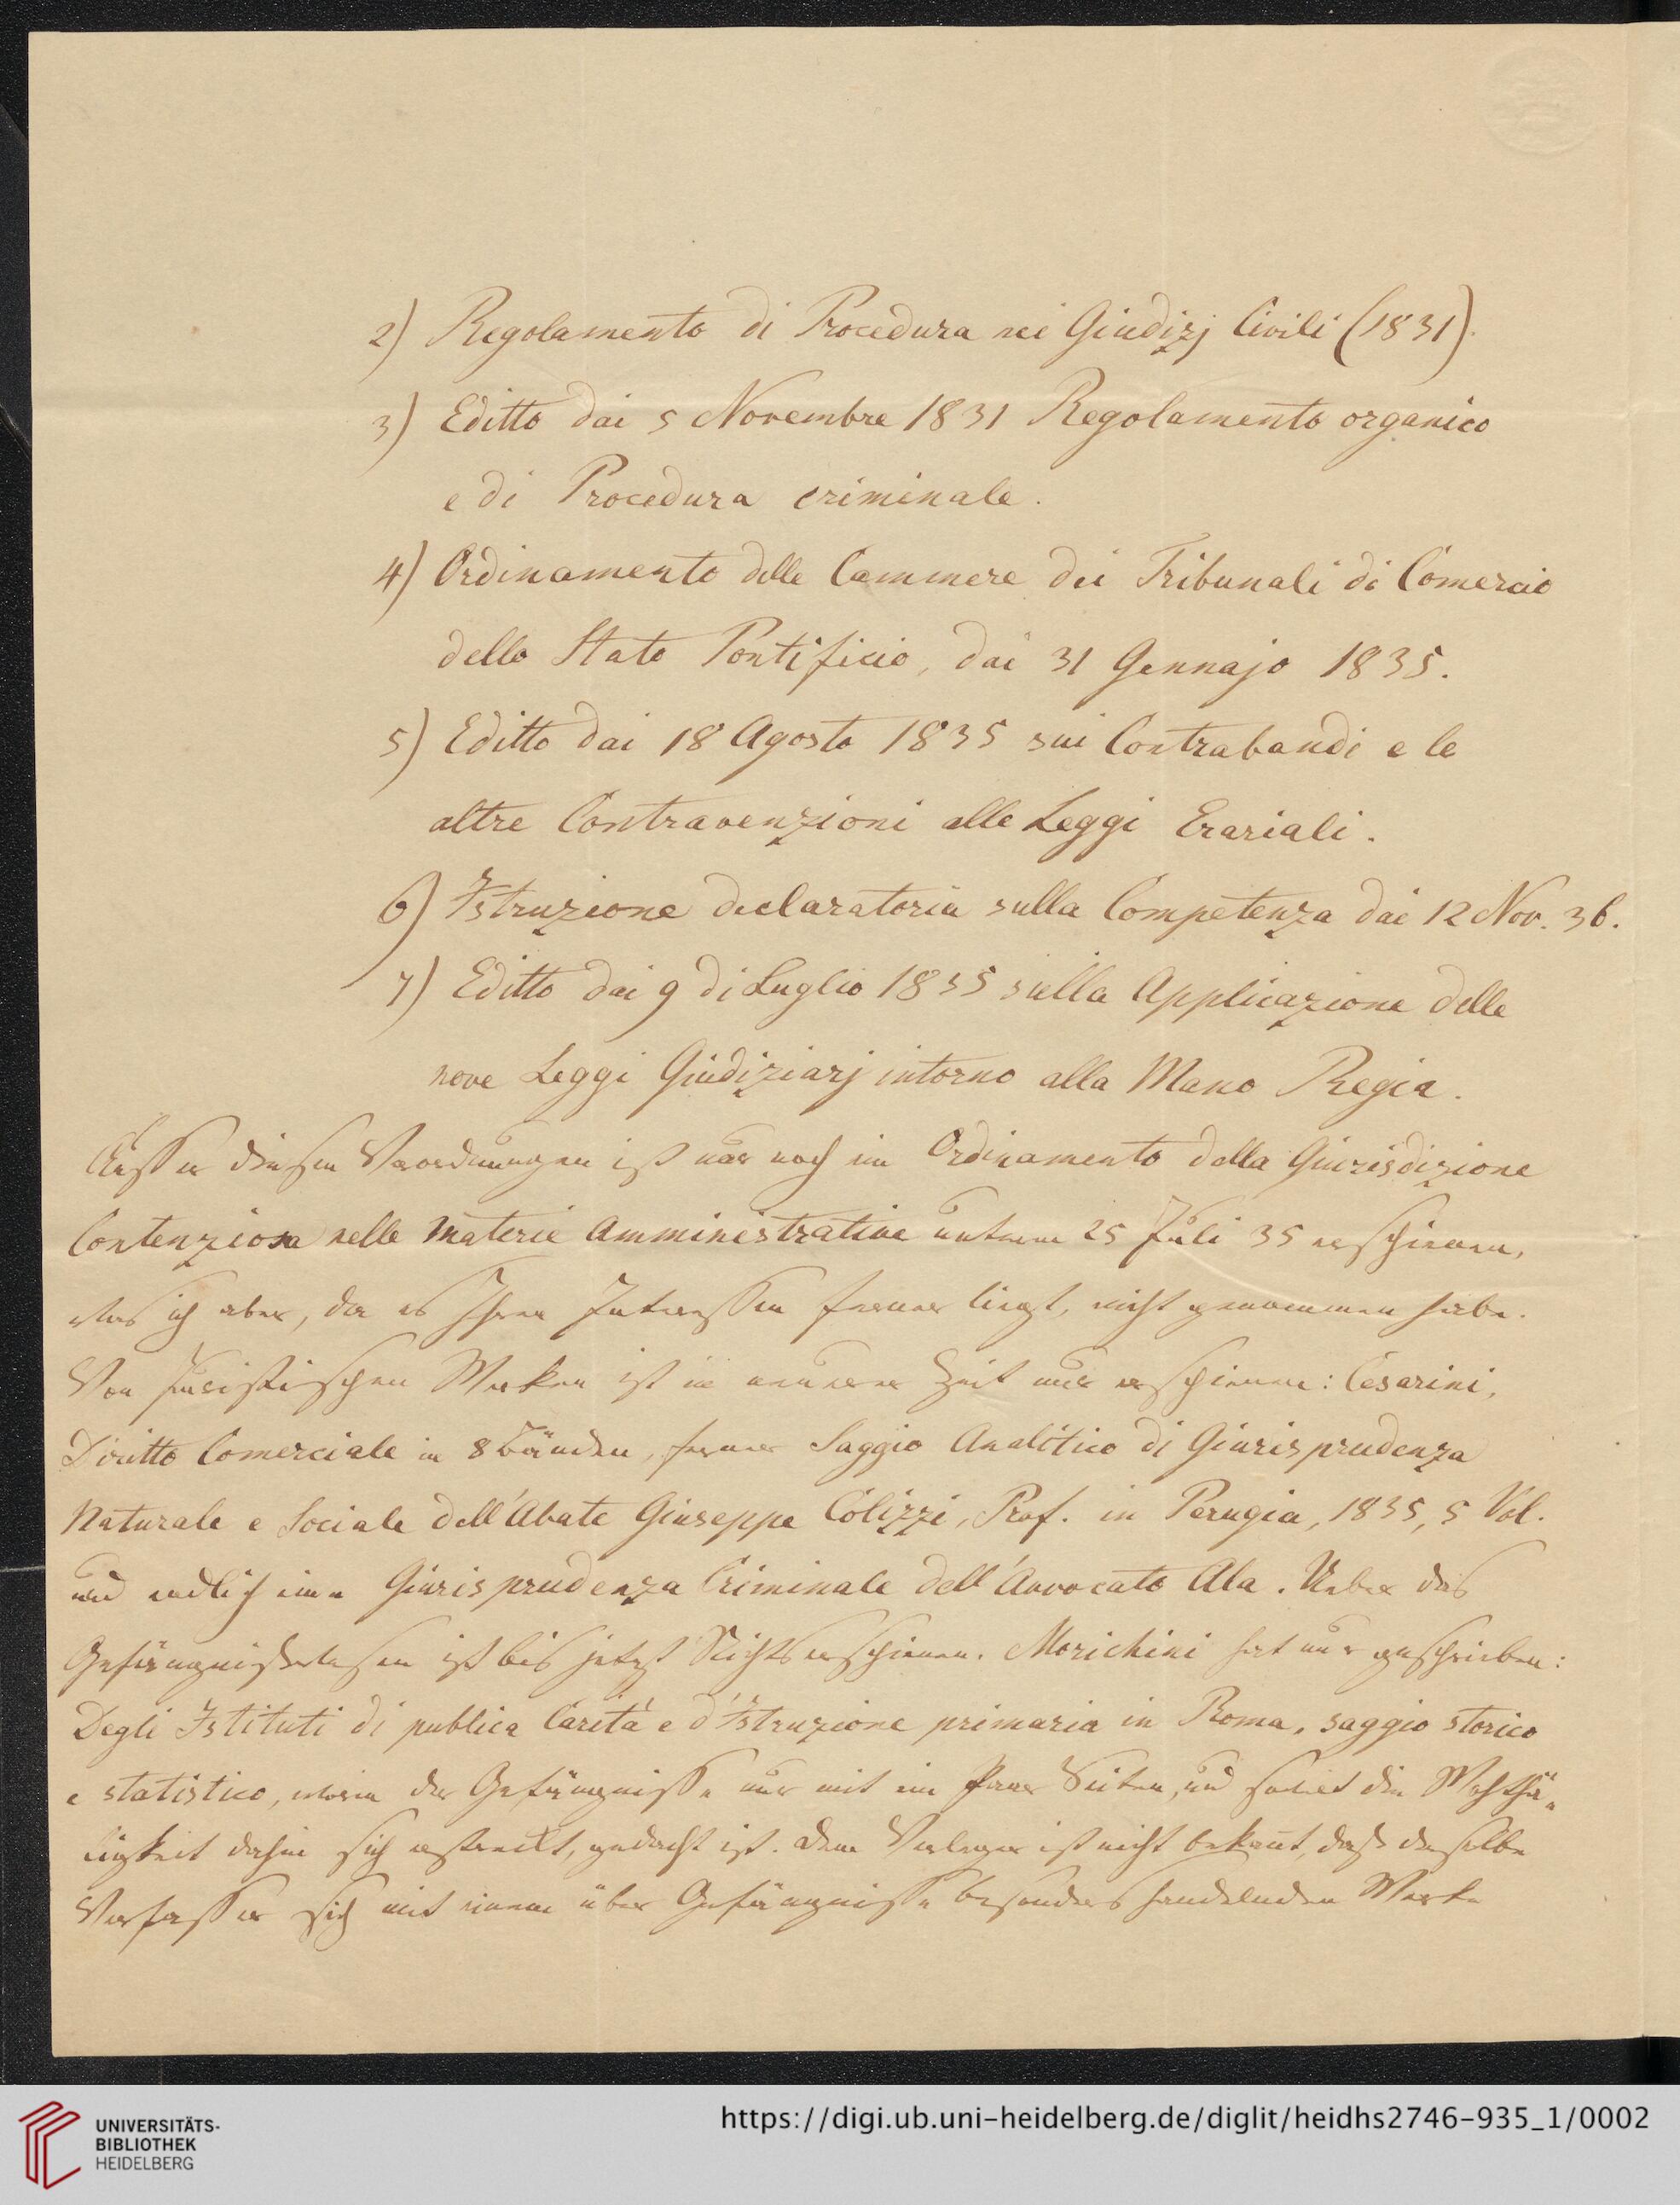 2) Regolamento di Procedura nei Giudizj Civili (1831).
3) Editto dai 5 Novembre 1831 Regolamento organico
e di Procedura criminale.
4) Ordinamento delle Cammere dei Tribunali di Comercio
dello Stato Pontificio, dai 31 Gennajo 1835.
5) Editto dai 18 Agosto 1835 sui Contrabandi e le
altre Contravenzioni alle Leggi Erariali.
6) Istruzione declaratoria sulla Competenza dai 12 Nov. 36.
7) Editto dai 9 di Luglio 1835 sulla Applicazione delle
nove Leggi Giudiziarj intorno alla Mano Regia.
Ausser diesen Verordnungen ist nur noch ein Ordinamento della Giurisdizione
Contenziosa nelle materie Amministrative unterm 25 Juli 35 erschienen,
was ich aber, da es Ihren Interessen ferner liegt, nicht genommen habe.
Von juristischen Werken ist in neuerer Zeit nur erschienen: Cesarini,
Diritto Comerciale in 8 Bänden, ferner Saggio Analitico di Giurisprudenza
Naturale e Sociale dell'Abate Giuseppe Colizzi, Prof. in Perugia, 1835, 5 Vol.
und endlich eine Giurisprudenza Criminale dell'Avvocato Ala. Ueber das
Gefängnißwesen ist bis jetzt Nichts erschienen. Morichini hat nur geschrieben:
Degli Istituti di publica Carità e d'Istruzione primaria in Roma, saggio storico
e statistico, worin der Gefängnisse nur mit ein Paar Seiten, und soweit die Wohlthä-
tigkeit dahin sich erstreckt, gedacht ist. Dem Verleger ist nicht bekannt, daß derselbe
Verfasser sich mit einem über Gefängnisse besonders handelnden Werke
UNIVERSITÄTS-
BIBLIOTHEK
HEIDELBERG
https://digi.ub.uni-heidelberg.de/diglit/heidhs2746-935_1/0002